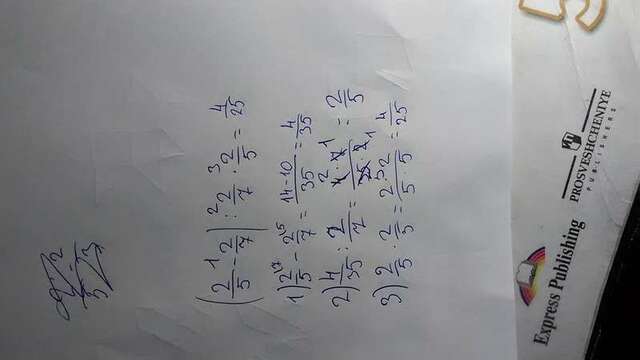 (2/5 - 2/7) : 2/7 · 2/5 = 4/25
1) 2/5 - 2/7 = 14-10/35 = 4/35
2) 4/35 : 2/7 = 4 · 7/35 · 2 = 2/5
3) 2/5 · 2/5 = 2 · 2/5 · 5 = 4/25
Express Publishing
PROSVESHCHENIYE
PUBLISHERS